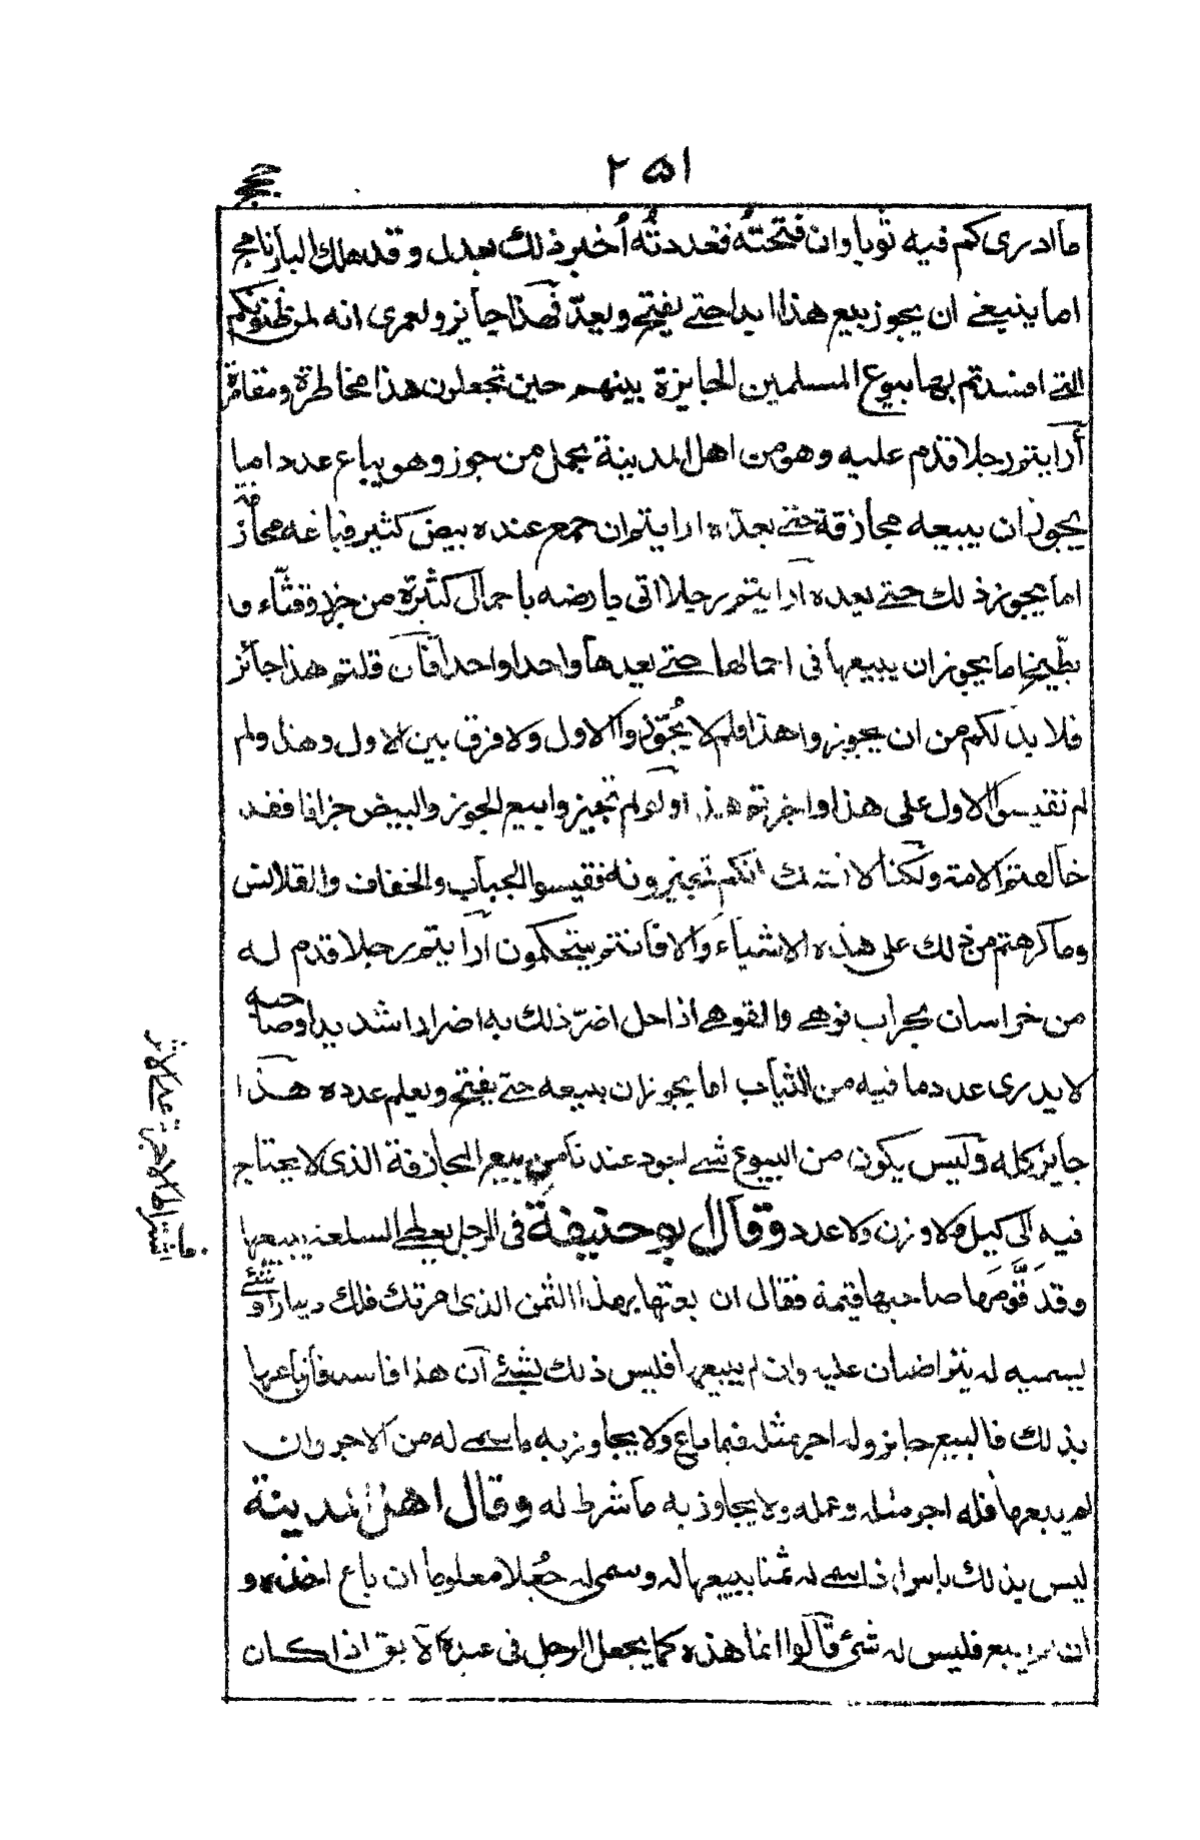 ٢٥١
حجج
ما ادرى كم فيه ثوبا وان فتحته فعددته أخبر ذلك بعدل و قد هلك البارنامج
اما ينبغي ان يجوز بيع هذا ابدا حتى يفتح ويعدّ فهذا جايز ولعمرى انه لمن ظنونكم
التي افسدتم بها بيوع المسلمين الجايزة بينهم حين تجعلون هذا مخاطرة ومقامرة
أرايتم رجلا قدم عليه وهو من اهل المدينة بحمل من جوز وهو يباع عددا ما
يجوز ان يبيعه مجازفة حتى يعدّه ارايتم ان جمع عنده بيض كثير فباعه مجازفة
اما يجوز ذلك حتى يعده أرايتم رجلا اتى بارضه باحمال كثيرة من خيار وقثّاء و
بطّيخ اما يجوز ان يبيعها فى احمالها حتى يعدها واحدا واحدا فان قلتم هذا جائز
فلا بد لكم من ان يجوز وا هذا فلم لا يجوّزوا الاول ولا فرق بين الاول وهذا ولم
لم تقيسوا الاول على هذا واجزتم هذا أولو لم تجيزوا بيع الجوز والبيض جزافا فقد
خالفتم الامة ولكنا لا نشك انكم تجيزونه فقيسوا الجباب والخفاف والقلانس
وما كرهتم من ذلك على هذه الاشياء والا فانتم تتحكمون أرايتم رجلا قدم له
من خراسان بجراب قوهي والقوهي اذا حل اضرّ ذلك به اضرارا شديدا وصاحبه
لا يدرى عدد ما فيه من الثياب اما يجوز ان يبيعه حتى يفتح ويعلم عدده هذا
جايز كله وليس يكون من البيوع شيء اجود عندنا من بيع المجازفة الذى لا يحتاج
فيه الى كيل ولا وزن ولا عدد وقال ابو حنيفة فى الرجل يعطى السلعة يبيعها
وقد قوّمها صاحبها قيمة فقال ان بعتها بهذا الثمن الذى امرتك فلك دينار او شئ
يسميه له يتراضيان عليه وان لم يبعها فليس ذلك بشئ ان هذا فاسد فان باعها
بذلك فالبيع جايز وله اجر مثله فيما باع ولا يجاوز به ما سمى له من الاجر وان
لم يبعها فله اجر مثله وعمله ولا يجاوز به ما شرط له وقال اهل المدينة
ليس بذلك باس اذا سمى له ثمنا يبيعها له وسمى له جُعلا معلوما ان باع اخذه و
ان لم يبع فليس له شئ قالوا انما هذه كما يجعل الرجل فى عبده الآبق اذا كان
ف
اشتراط الاجرة على الامر